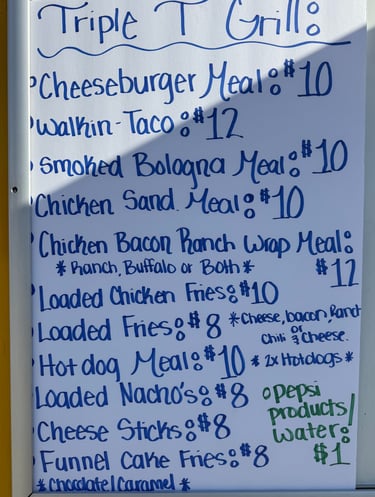 Triple T Grill:
Cheeseburger Meal: $10
Walkin-Taco: $12
Smoked Bologna Meal: $10
Chicken Sand. Meal: $10
Chicken Bacon Ranch Wrap Meal:
* Ranch, Buffalo or Both * $12
Loaded Chicken Fries: $10
Loaded Fries: $8 * Cheese, bacon, Ranch
or
Chili & Cheese.
Hotdog Meal: $10 * 2x Hotdogs *
Loaded Nacho's: $8
Cheese Sticks: $8
Funnel Cake Fries: $8
* Chocolate/Caramel *
Pepsi
products/
Water:
$1